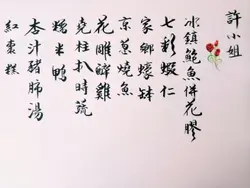 許小姐
冰鎮鮑魚併花膠
七彩蝦仁
家鄉蠔缽
京蔥燒魚
花雕醉雞
堯柱扒時蔬
糯米鴨
杏汁豬肺湯
紅棗糕